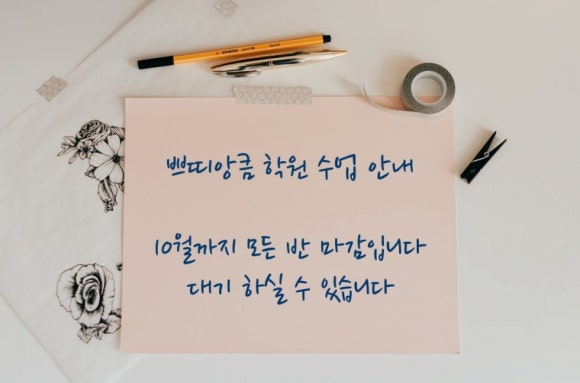 쁘띠앙큼 학원 수업 안내
10월까지 모든 반 마감입니다
대기 하실 수 있습니다